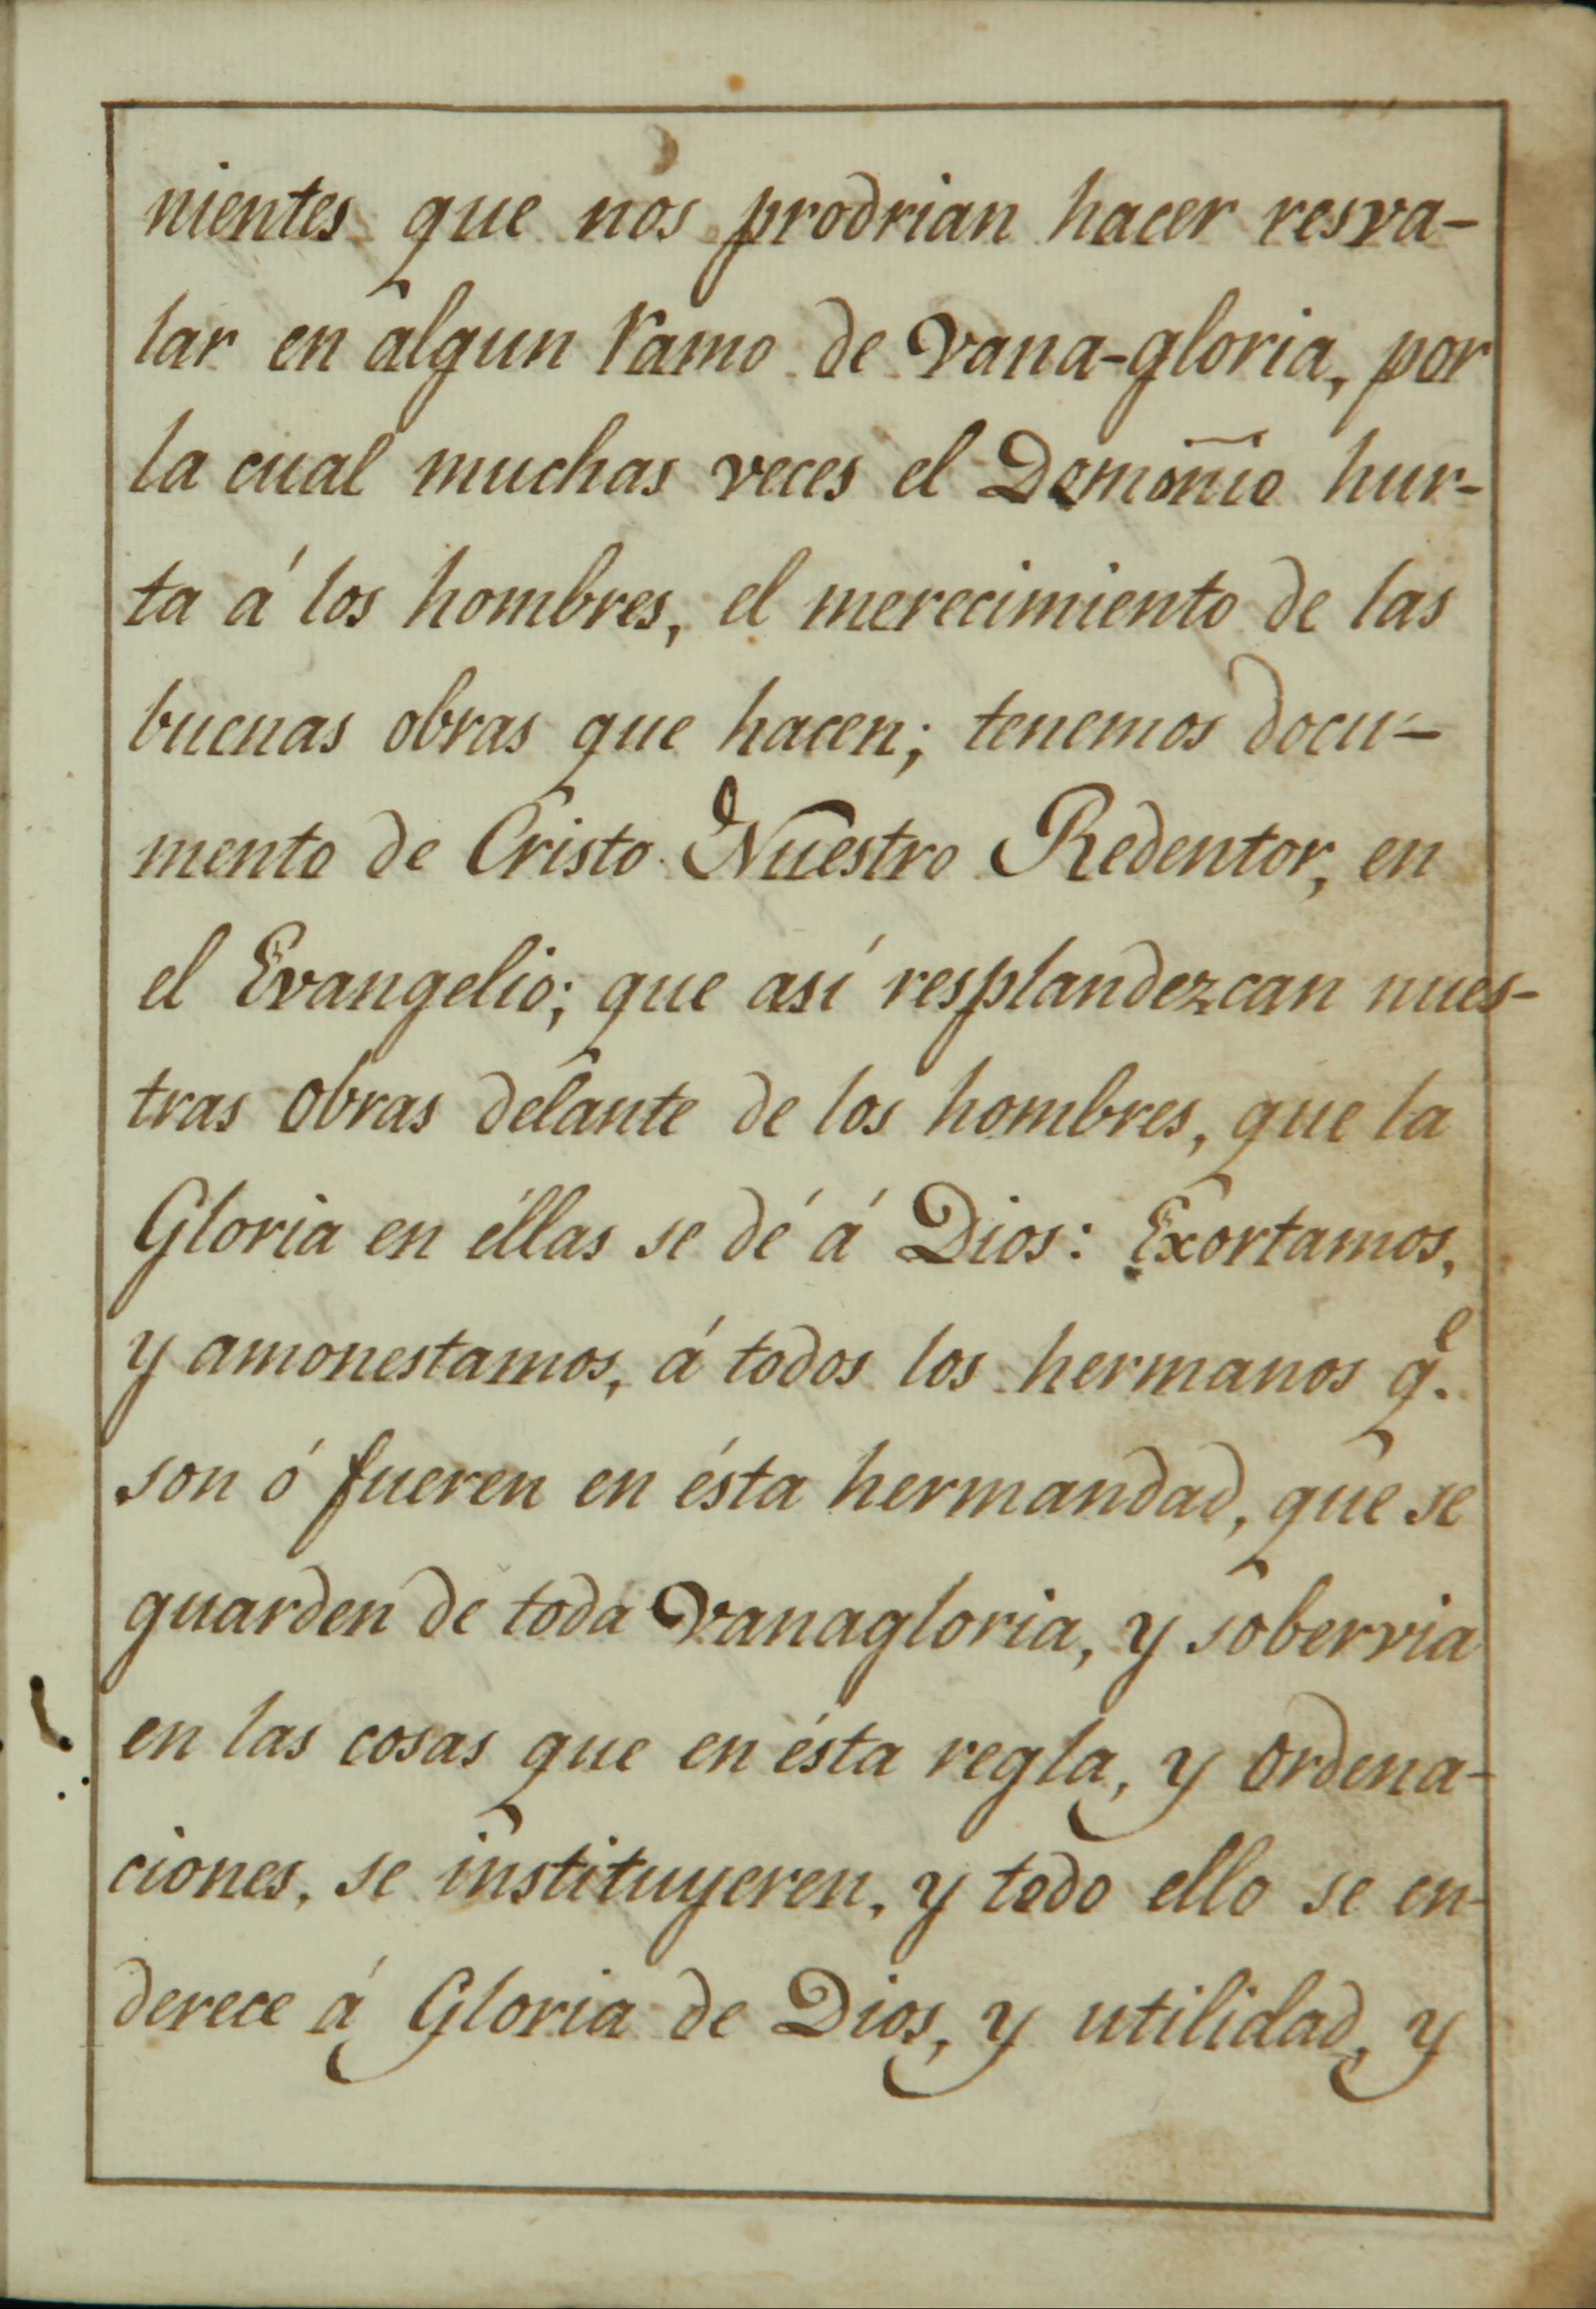 nientes que nos prodrian hacer resva-
lar en algun ramo de vana-gloria, por
la cual muchas veces el Demoñio hur-
ta á los hombres, el merecimiento de las
buenas obras que hacen; tenemos docu-
mento de Cristo Nuestro Redentor, en
el Evangelio; que así resplandezcan nues-
tras obras delante de los hombres, que la
Gloria en éllas se dé á Dios: Exortamos,
y amonestamos, á todos los hermanos q.e
son ó fueren en ésta hermandad, que se
guarden de toda vanagloria, y sobervia
en las cosas que en ésta regla, y Ordena-
ciones, se instituyeren, y todo ello se en-
derece á Gloria de Dios, y utilidad, y